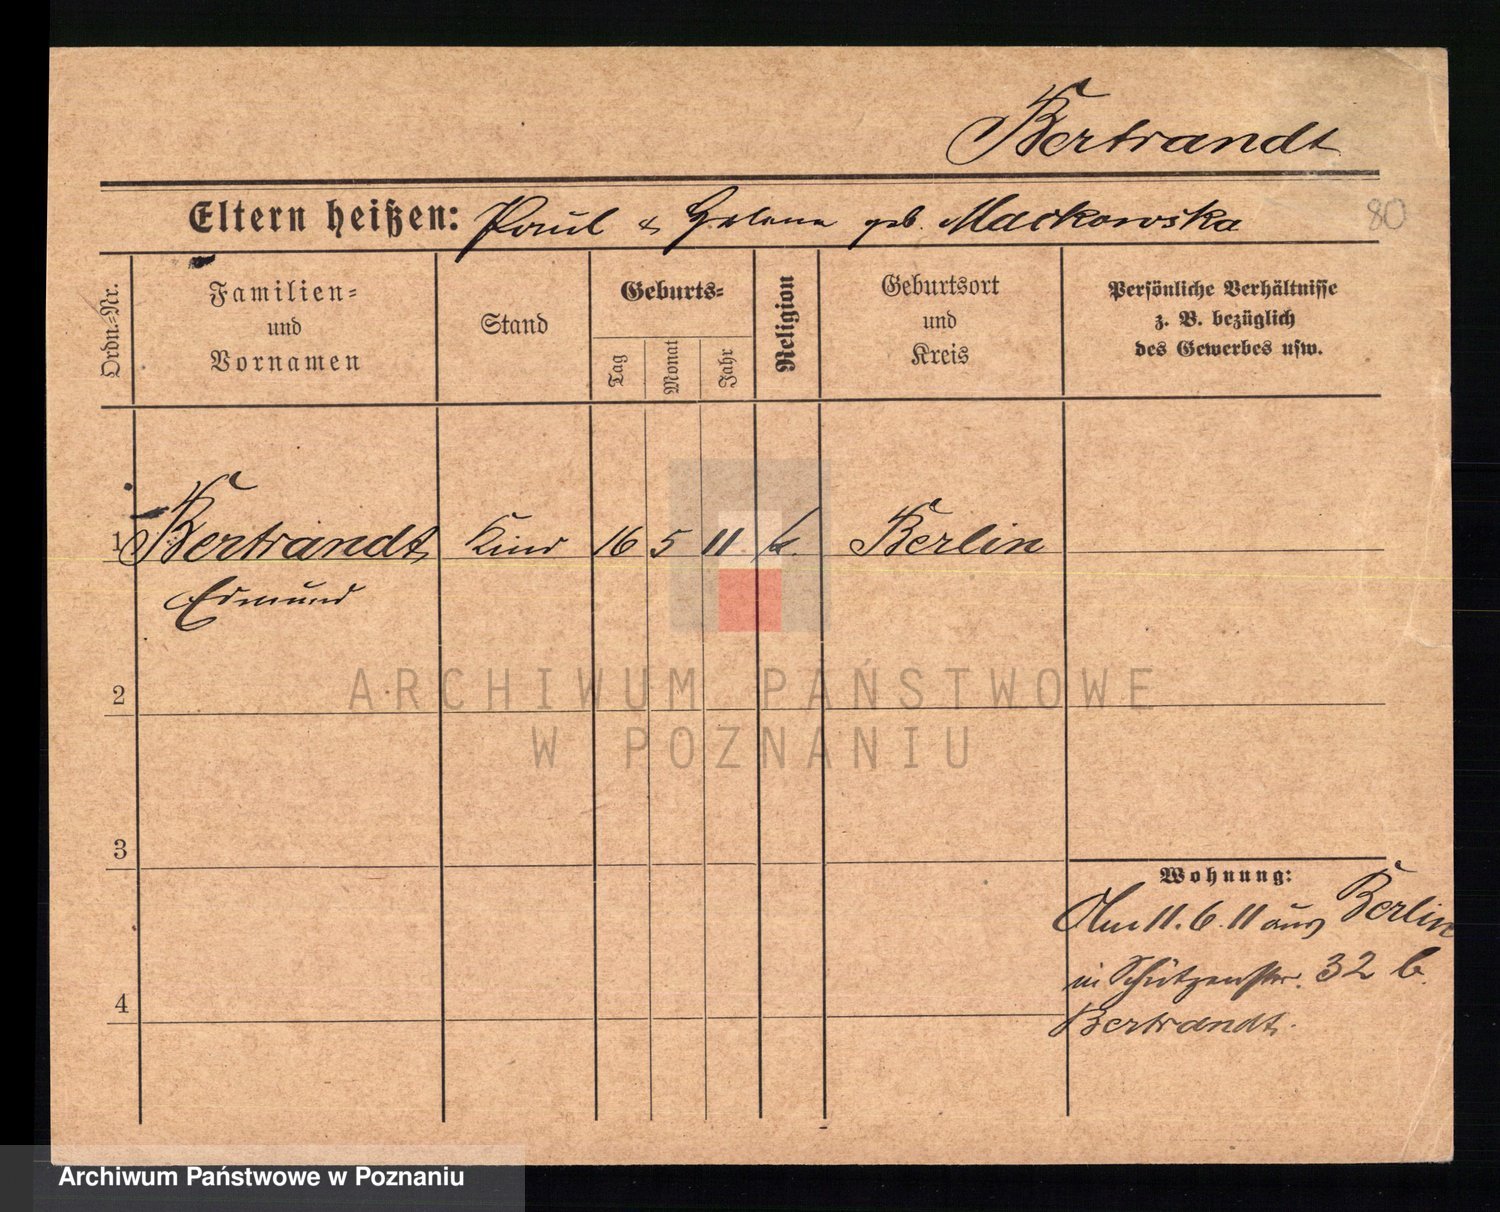 Bertrandt
Eltern heißen: Paul & Helene geb. Mackowska
80
Ordn.-Nr.
Familien-
und
Vornamen
Stand
Geburts-
Tag
Monat
Jahr
Religion
Geburtsort
und
Kreis
Persönliche Verhältnisse
z. B. bezüglich
des Gewerbes usw.
1 Bertrandt Kind 16 5 11 k. Berlin
Edmund
2
ARCHIWUM PAŃSTWOWE
W POZNANIU
3
Wohnung:
Am 11.6.11 aus Berlin
in Schützenstr. 32 b.
Bertrandt.
4
Archiwum Państwowe w Poznaniu